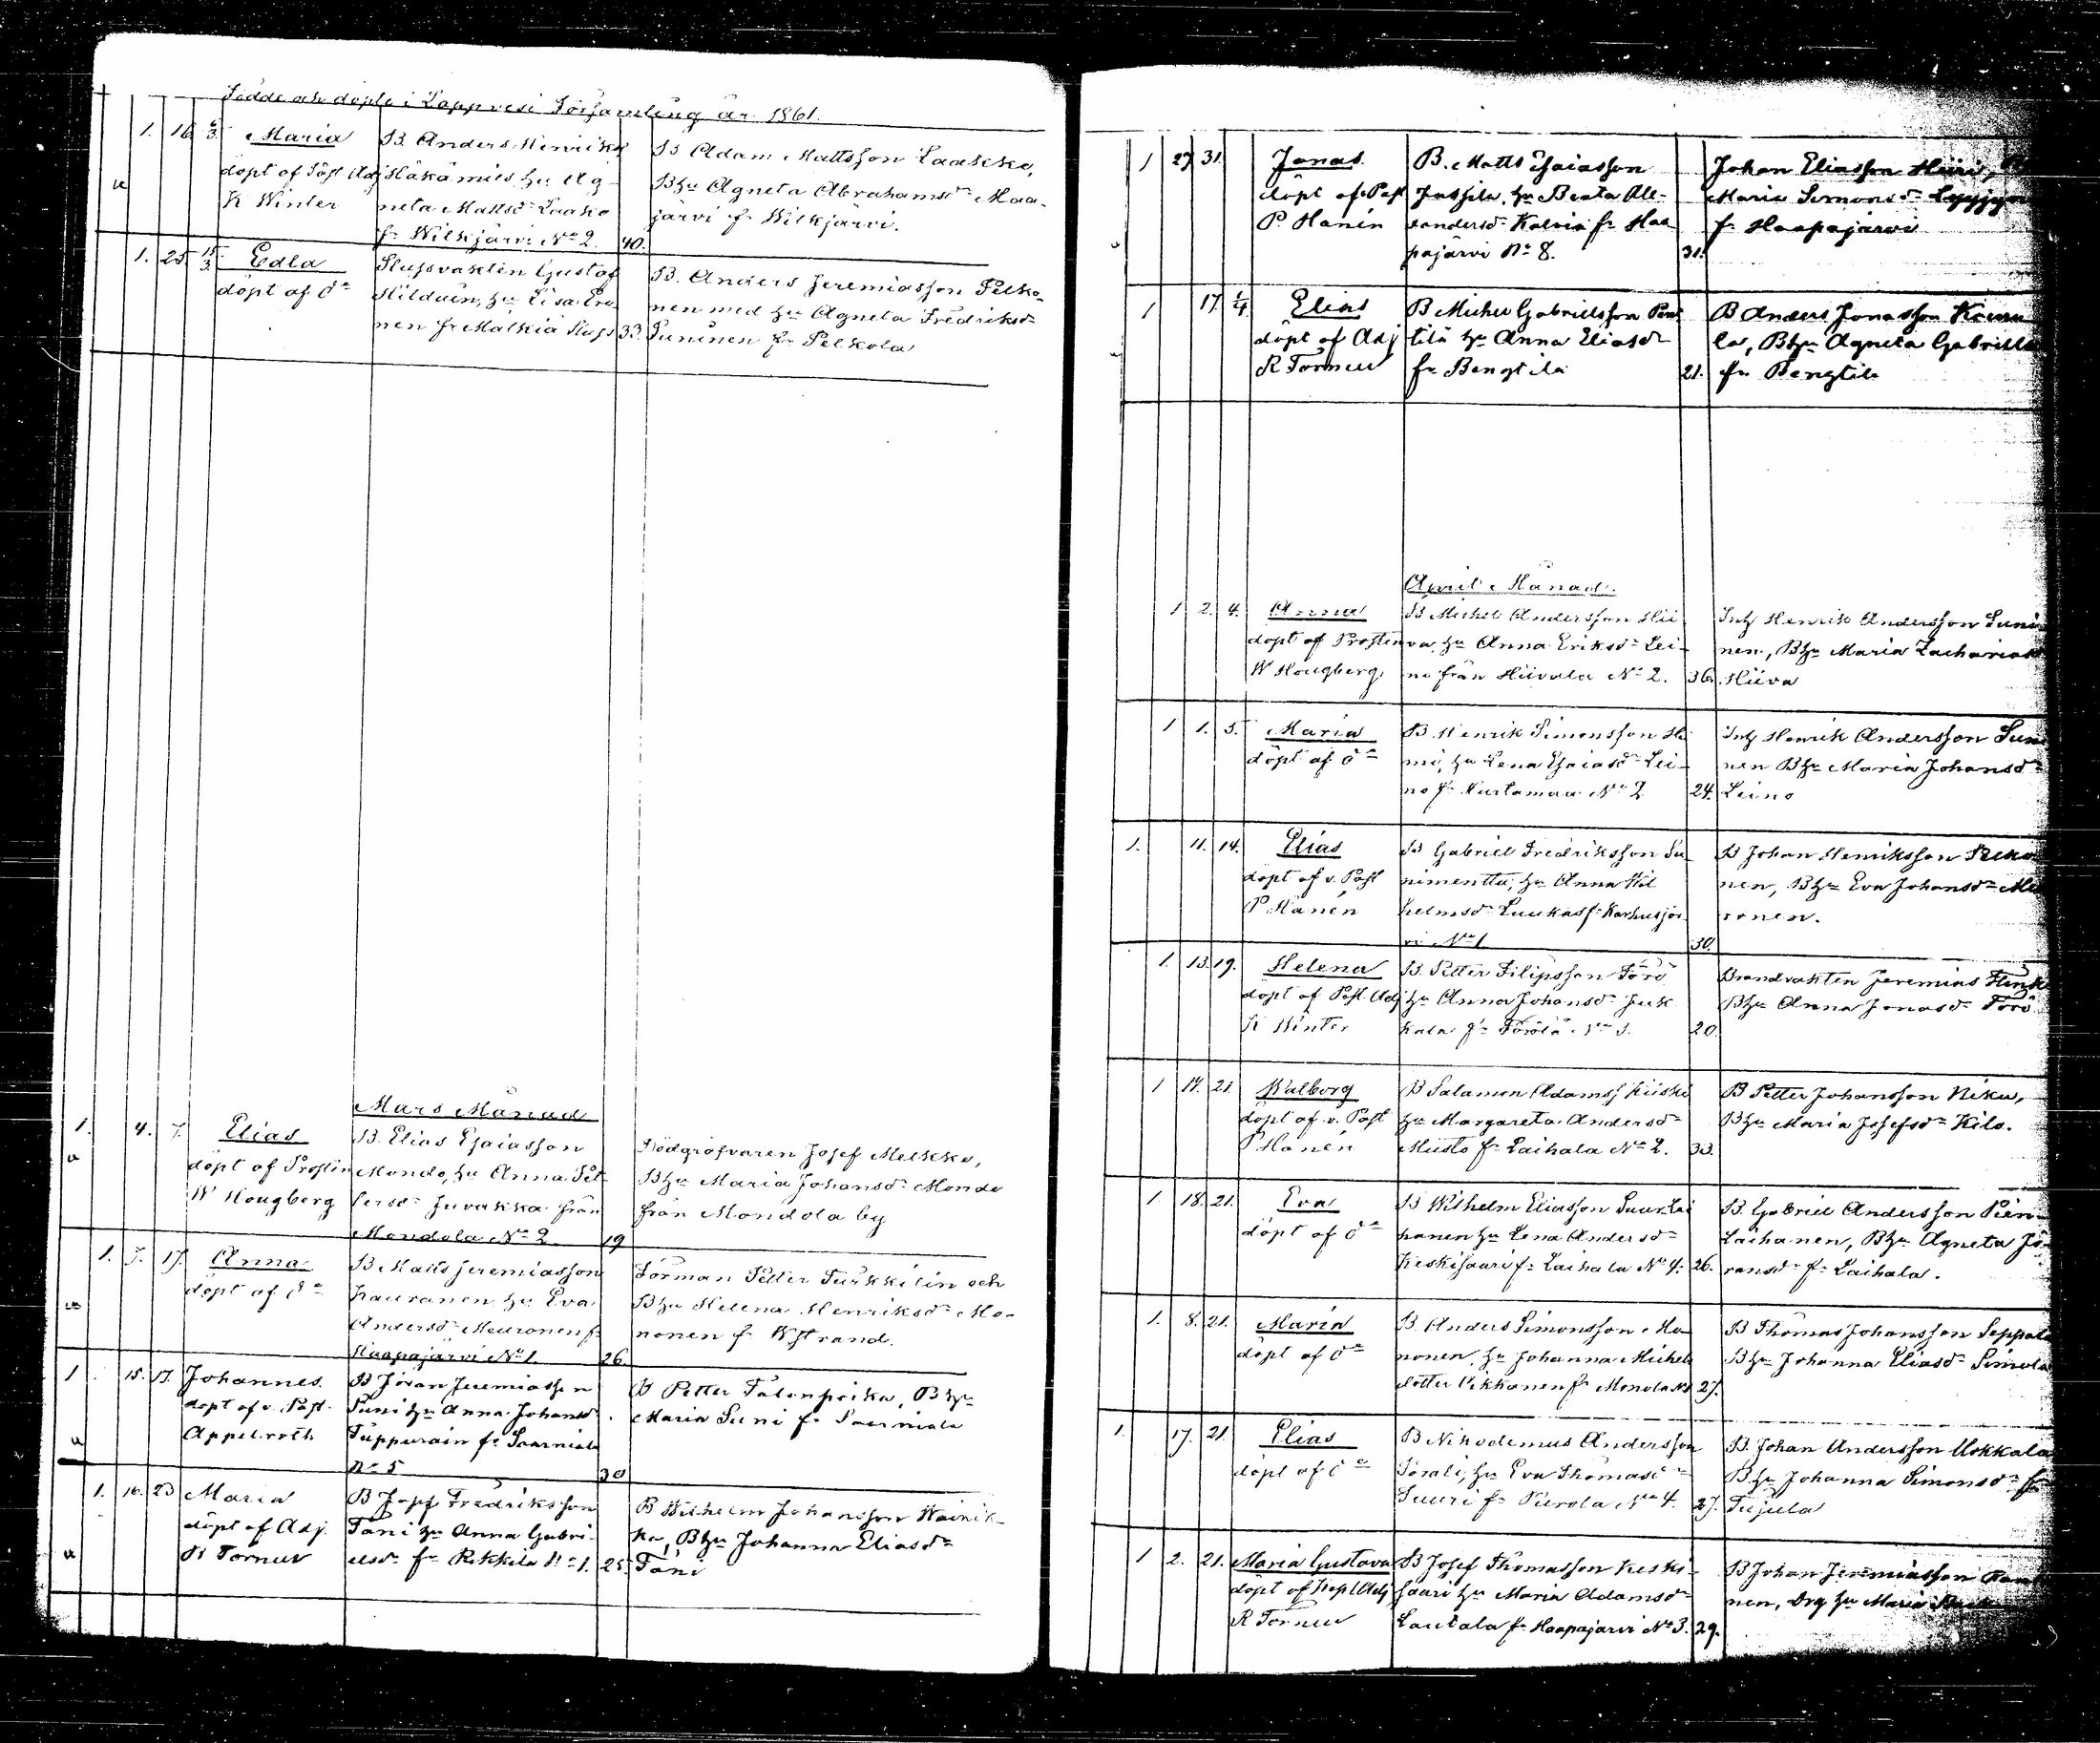 Födde och döpte i Lappvesi Församling år 1861.
1. 16. 6/3. Maria
döpt af Past Adj
K Winter
B. Anders Henriks
Häkämies hu Ag-
neta Mattsdr Laako
fr Wilkjärvi No 2. 40.
B Adam Mattsson Laakko,
Bhu Agneta Abrahamsdr Maa-
järvi fr Wilkjärvi.
1. 25. 15/3 Edla
döpt af do
Slussvakten Gustaf
Hilduen, hu Lisa Ero-
nen fr Mälkiä Sluss 33.
B. Anders Jeremiasson Pelko-
nen med hu Agneta Fredriksdr
Suninen fr Pelkola
Mars Månad
1. 4. 7. Elias
döpt af Prosten
W Hougberg
B. Elias Esaiasson
Mondo, hu Anna Pet-
tersdr Juvakka från
Mondola No 2 19
Nödgräfvaren Josef Melkko,
Bhu Maria Johansdr Mondo
från Mondola by
1. 7. 17. Anna
döpt af do
B Matts Jeremiasson
Kauranen hu Eva
Andersdr Meuronen fr
Haapajärvi No 1. 26.
Förman Petter Turkkilin och
Bhu Helena Henriksdr Mo-
nonen fr Wstrand.
1 15. 17. Johannes.
döpt af v. Past.
Appelroth
B Jöran Jeremiasson
Suni hu Anna Johansdr
Tuppurain fr Saarniala
No 5 30
B Petter Talonpoika, Bhu
Maria Suni fr Saarniala
1. 16. 23 Maria
döpt af Adj.
R Torneu
B Josef Fredriksson
Täni hu Anna Gabri-
elsdr fr Rikkilä No 1. 25.
B Wilhelm Johansson Wainik-
ka, Bhu Johanna Eliasdr
Täni
1 27 31. Jonas.
döpt af Past
P. Hanén
B. Matts Esaiasson
Jussila, hu Beata Ale-
xandersdr Kalvia fr Haa-
pajärvi No 8. 31.
Johan Eliasson Hiiri,
Maria Simonsdr
fr Haapajärvi
1 17. 1/4. Elias
döpt af Adj
R Torneu
B Michel Gabrielsson Pen-
tilä hu Anna Eliasdr
fr Bengtilä 21.
B Anders Jonasson Kauru
la, Bhu Agneta Gabriels
fr Bengtilä
April Månad.
1 2. 4. Anna
döpt af Prosten
W Hougberg
B Michel Andersson Hii
va, hu Anna Eriksdr Lei-
no från Hiivala No 2. 36.
Inh Henrik Andersson Suni
nen, Bhu Maria Zachariasdr
Hiiva
1 1. 5. Maria
döpt af do
B. Henrik Simonsson Hi
mi, hu Lena Esaiasdr Lei-
no fr Kurtamaa No 2 24.
Inh Henrik Andersson Suni
nen Bhu Maria Johansdr
Leino
1. 11. 14. Elias
döpt af v. Past
P Hanén
B Gabriel Fredriksson Su
nimentta, hu Anna Wil
helmsdr Luukas fr Karhusjär
vi No 1 30.
B Johan Henriksson Pelko
nen, Bhu Eva Johansdr Me
ronen.
1. 13. 19. Helena
döpt af Past. Adj
K Winter
B. Petter Filipsson Törö
hu Anna Johansdr Juk
kala fr Törölä No 3. 20.
Brandvakten Jeremias
Bhu Anna Jonasdr Törö
1 14. 21 Walborg
döpt af v. Past
P Hanén
B Salamon Adamss Kiiski
hu Margareta Andersdr
Miisto fr Laihala No 2. 33.
B Petter Johansson Niku,
Bhu Maria Josefsdr Kilo.
1. 18. 21. Eva
döpt af do
B Wilhelm Eliasson Suur Lai
hanen hu Lena Andersdr
Keskisaari fr Laihala No 4. 26.
B. Gabriel Andersson Pien
Laihanen, Bhu Agneta Jö
ransdr fr Laihala.
1. 8. 21. Maria
döpt af do
B. Anders Simonsson Mo
nonen, hu Johanna Michels
dotter Pikkanen fr Monola No 27.
B Thomas Johansson Seppälä
Bhu Johanna Eliasdr Simola
1. 17. 21. Elias
döpt af do
B Nikodemus Andersson
Sorali, hu Eva Thomasdr
Suuri fr Purola No 4. 27.
B. Johan Andersson Uokkala
Bhu Johanna Simonsdr fr
Tujula
1 2. 21. Maria Gustava
döpt af Kapl Adj
R Torneu
B Josef Thomasson Keski-
saari hu Maria Adamsdr
Lautala fr Haapajärvi No 3. 29.
B Johan Jeremiasson
nen, Drg hu Maria